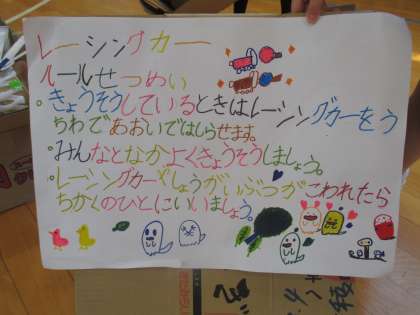 レーシングカー
ルールせつめい
・きょうそうしているときはレーシングカーをう
ちわであおいではしらせます。
・みんなとなかよくきょうそうしましょう。
・レーシングカーやしょうがいぶつがこわれたら
ちかくのひとにいいましょう。